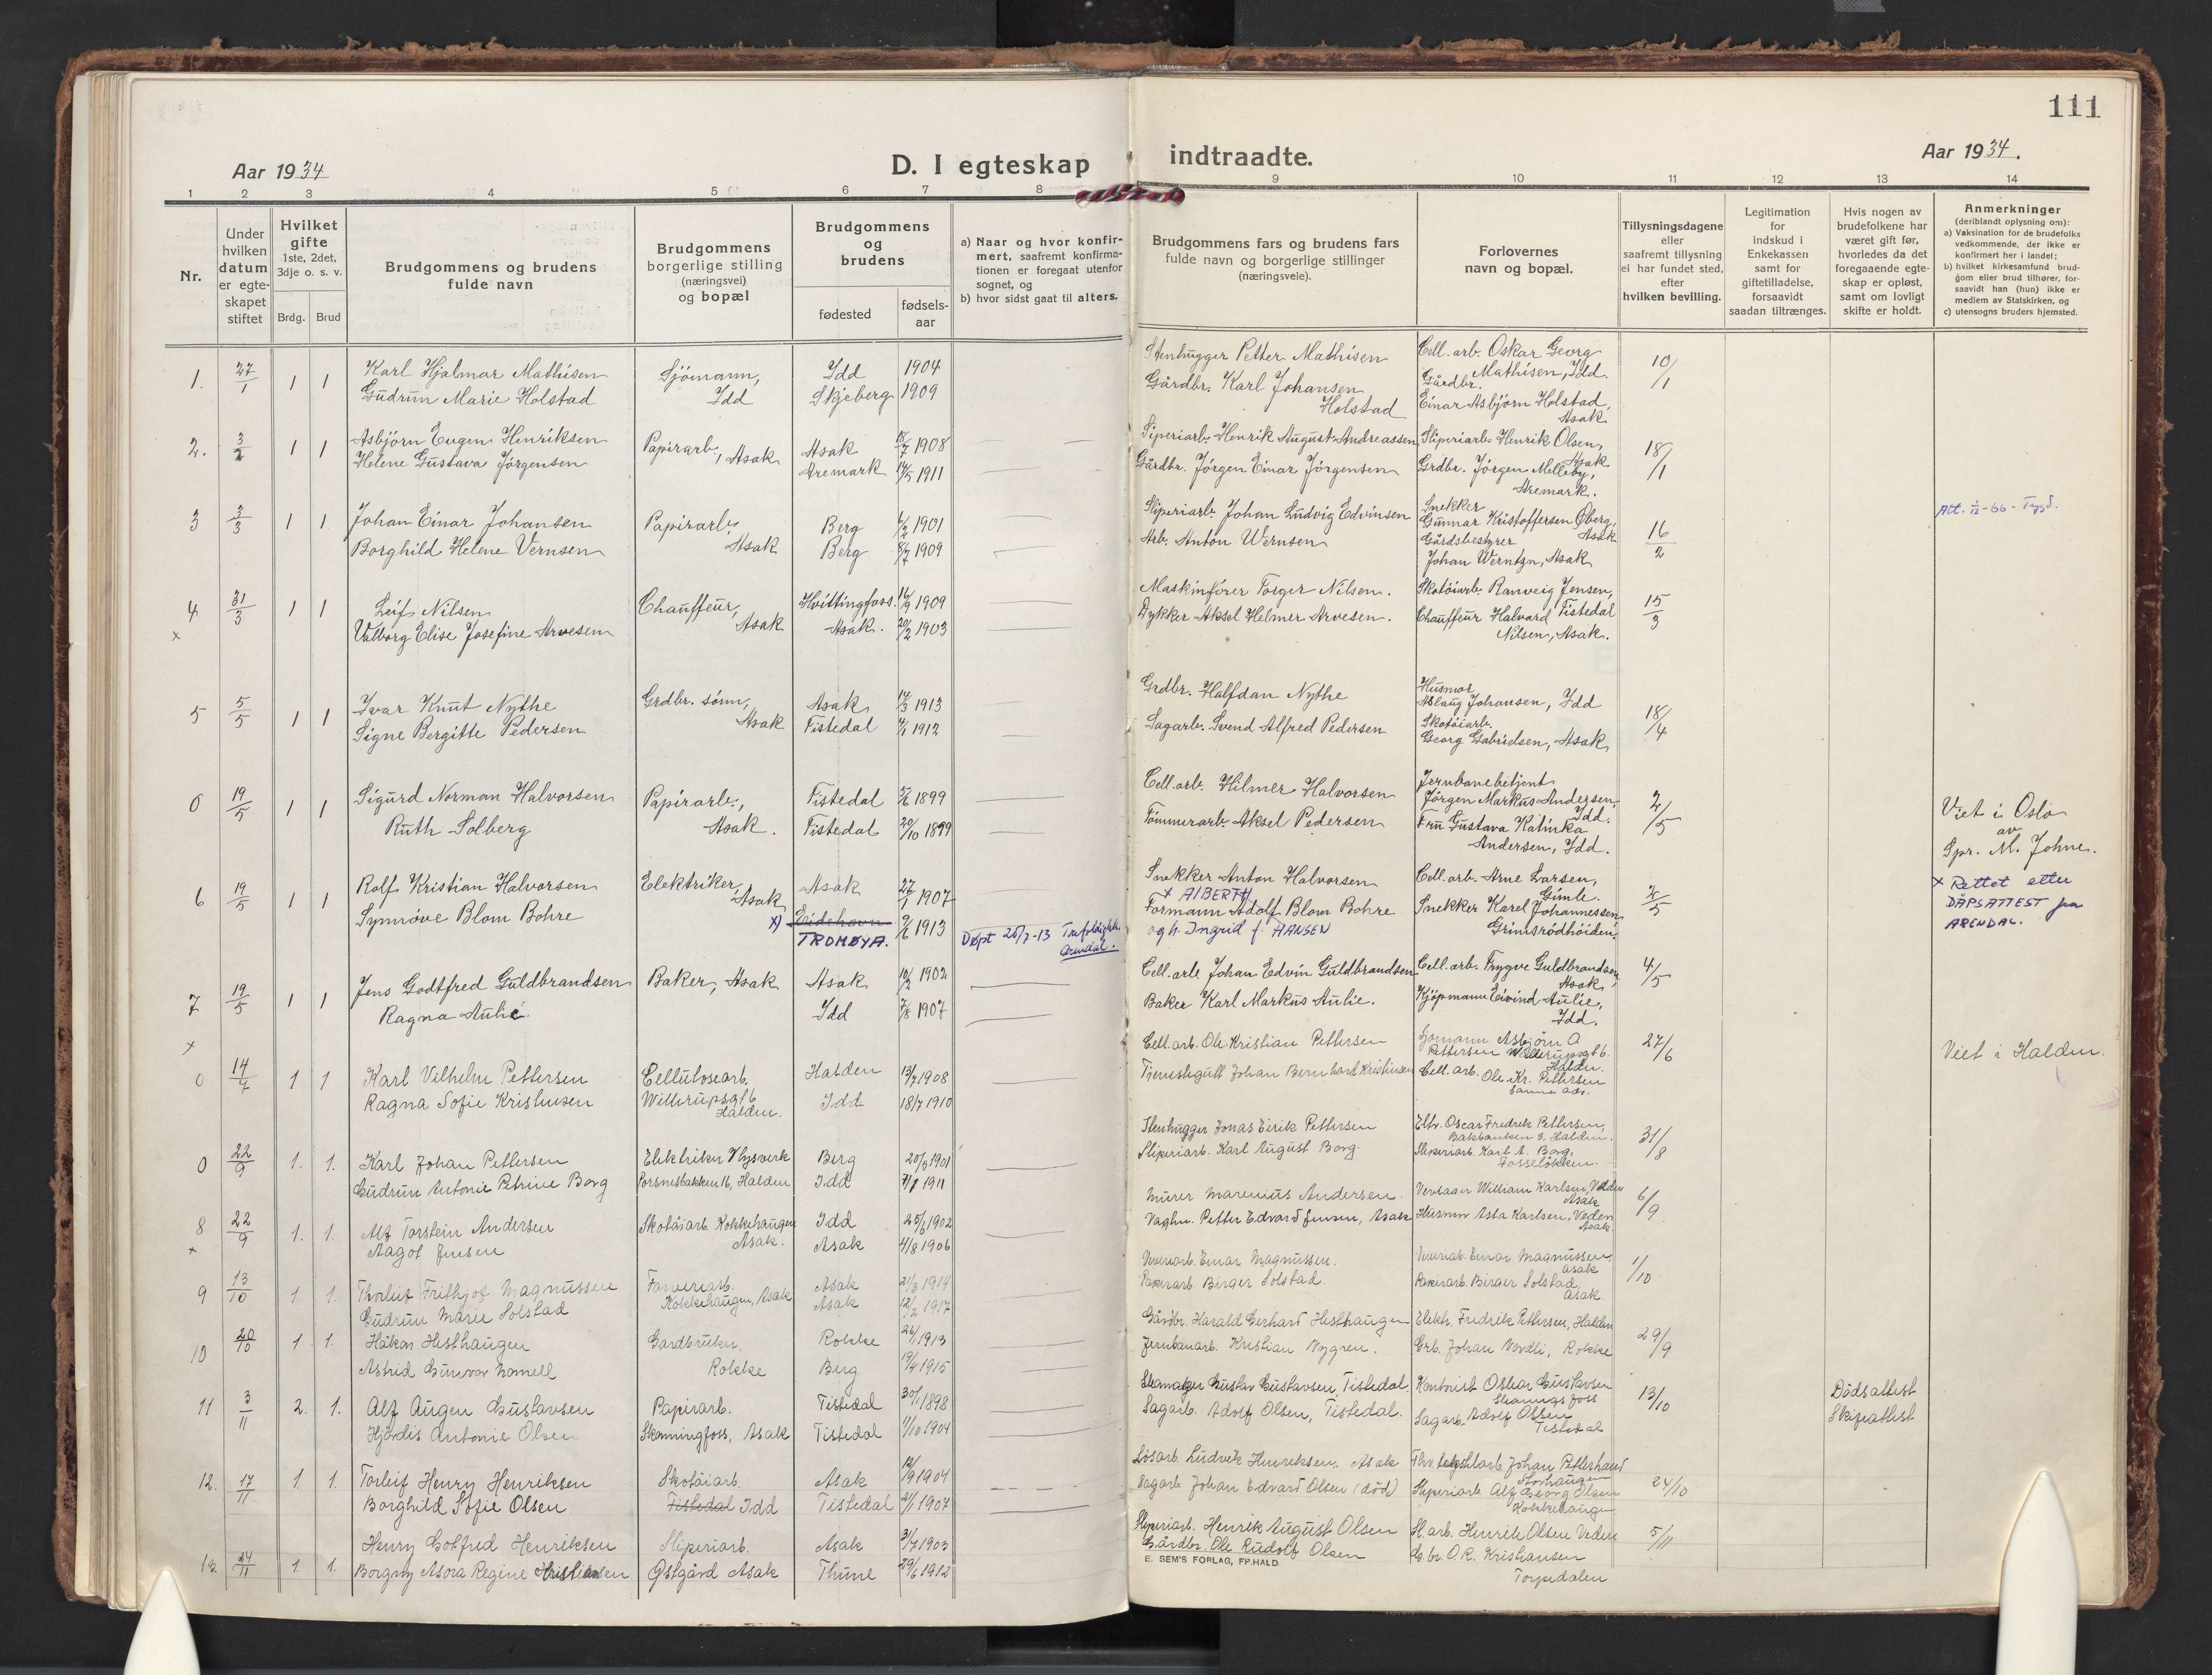 111
Aar 1934
D. I egteskap indtraadte.
Aar 1934.
1 2 3 4 5 6 7 8 9 10 11 12 13 14
Nr.
Under hvilken datum er egteskapet stiftet
Hvilket gifte 1ste, 2det, 3dje o. s. v.
Brdg. Brud
Brudgommens og brudens fulde navn
Brudgommens borgerlige stilling (næringsvei) og bopæl
Brudgommens og brudens
fødested
fødsels-aar
a) Naar og hvor konfirmert, saafremt konfirmationen er foregaat utenfor sognet, og
b) hvor sidst gaat til alters.
Brudgommens fars og brudens fars fulde navn og borgerlige stillinger (næringsveie).
Forlovernes navn og bopæl.
Tillysningsdagene eller saafremt tillysning ei har fundet sted, efter hvilken bevilling.
Legitimation for indskud i Enkekassen samt for giftetilladelse, forsaavidt saadan tiltrænges.
Hvis nogen av brudefolkene har været gift før, hvorledes da det foregaaende egteskap er opløst, samt om lovligt skifte er holdt.
Anmerkninger (deriblandt oplysning om):
a) Vaksination for de brudefolks vedkommende, der ikke er konfirmert her i landet;
b) hvilket kirkesamfund brudgom eller brud tilhører, forsaavidt han (hun) ikke er medlem av Statskirken, og
c) utensogns bruders hjemsted.
1. 27/1 1 1 Karl Hjalmar Mathisen Sjömann, Idd 1904 Stenhugger Petter Mathisen Cell. arb. Oskar Georg Mathisen, Idd. 10/1
Gudrun Marie Holstad Idd Skjeberg 1909 Gårdbr. Karl Johansen Holstad Gårdbr. Einar Asbjörn Holstad, Asak
2. 3/2 1 1 Asbjörn Eugen Henriksen Papirarb., Asak Asak 18/7 1908 Sliperiarb. Henrik August Andreassen Sliperiarb. Henrik Olsen, Asak 18/1
Helene Gustava Jörgensen Aremark 14/5 1911 Gårdbr. Jörgen Einar Jörgensen Grdbr. Jörgen Melleby, Aremark.
3 3/3 1 1. Johan Einar Johansen Papirarb., Asak Berg 1901 Sliperiarb. Johan Ludvig Edvinsen Snekker Gunnar Kristoffersen Öberg, Asak 16/2 Att. 1/12-66-Trygd.
Borghild Helene Vernsen Berg 8/7 1909 Arb. Anton Wernsen Gårdsbestyrer Johan Werntzn, Asak
4 31/3 1 1 Leif Nilsen Chauffeur, Asak Hvittingfoss. 16/9 1909 Maskinförer Torger Nilsen. Skotöiarb. Ranveig Jensen, Tistedal 15/3
x Valborg Elise Josefine Arvesen Asak. 20/2 1903 Dykker Aksel Helmer Arvesen. Chauffeur Halvard Nilsen, Asak.
5 5/5 1 1 Ivar Knut Nythe Grdbr. sönn, Asak Asak 14/3 1913 Grdbr. Halfdan Nythe Husmor Aslaug Johansen, Idd 18/4
Signe Bergitte Pedersen Tistedal 1912 Sagarb. Svend Alfred Pedersen Skotöiarb. Georg Gabrielsen, Asak
0 19/5 1 1 Sigurd Norman Halvorsen Papirarb., Asak. Tistedal 1899 Cell. arb. Hilmer Halvorsen Jernbanebetjent Jörgen Markus Andersen, Idd. 2/5 Viet i Oslo av Spr. M. Johne.
Ruth Solberg Tistedal 20/10 1899 Tömmerarb. Aksel Pedersen Fru Gustava Katinka Andersen, Idd.
6 19/5 1 1 Rolf Kristian Halvorsen Elektriker, Asak Asak 27/1 1907 Snekker Anton Halvorsen Cell. arb. Arne Larsen, Gimle. 2/5 x Rettet etter DÅPSATTEST fra ARENDAL.
Synnöve Blom Bohre x) Eidehavn TROMØYA. 9/6 1913 Døpt 25/7-13 Arendal. x AlBERTH Formann Adolf Blom Bohre og h. Ingrid f. HANSEN Snekker Karel Johannessen, Grimsrödhöiden.
7 19/5 1 1 Jens Godtfred Guldbrandsen Baker, Asak Asak 10/2 1902 Cell. arb. Johan Edvin Guldbrandsen Cell. arb. Trygve Guldbrandsen, Asak, 4/5
Ragna Aulie. Idd 7/8 1907 Baker Karl Markus Aulie. Kjöpmann Eivind Aulie, Idd.
x
0 14/4 1 1 Karl Vilhelm Pettersen Cellulosearb. Halden 13/7 1908 Cell. arb. Ole Kristian Pettersen Asbjörn A Pettersen Halden. 27/6 Viet i Halden.
Ragna Sofie Kristensen Willerupsgt 6 Halden. Idd 18/7 1910 Johan Bernhard Kristensen Cell. arb. Ole Kr. Pettersen samme adr.
0 22/9 1. 1. Karl Johan Pettersen Elektriker Berg 20/5 1901 Stenhugger Jonas Eirik Pettersen Oscar Fredrik Pettersen, Bakbanken 3, Halden. 31/8
Gudrun Antonie Petrine Borg Porsnesbakken 16, Halden Idd 1911 Sliperiarb. Karl August Borg Sliperiarb. Karl A. Borg, Fosselökken.
8 22/9 1. 1. Alf Torstein Andersen Skotöiarb. Kokkehaugen Asak. Idd 25/5 1902 Murer Marenius Andersen. William Karlsen, Veden Asak 6/9
x Aagot Jensen Asak 4/8 1906 Vaghm. Petter Edvard Jensen, Asak Husmor Asta Karlsen, Veden Asak.
9 13/10 1 1. Thorleif Frithjof Magnussen Farveriarb. Kokkehaugen, Asak Asak 21/3 1914 Einar Magnussen. Einar Magnussen, Asak 1/10
Gudrun Marie Solstad Asak 12/2 1917 Papirarb. Birger Solstad. Papirarb. Birger Solstad, Asak
10 20/10 1 1. Håkon Hesthaugen Gardbruker, Rokke 26/1 1913 Gårdbr. Harald Gerhard Hesthaugen Elektr. Fredrik Pettersen, Halden 29/9
Astrid Gunvor Rokke Berg 19/4 1915 Jernbanarb. Kristian Nygren. Grb. Johan Vevdli, Rokke
11 3/11 2. 1. Alf Augen Gustavsen Papirarb. Tistedal 30/1 1898 Gustav Gustavsen, Tistedal. Kontorist Oskar Gustavsen Skonningsfoss 13/10 Dödsattest Skifteattest
Hjördis Antonie Olsen Skonningfoss, Asak Tistedal 11/10 1904 Sagarb. Adolf Olsen, Tistedal. Sagarb. Adolf Olsen Tistedal
12. 17/11 1. 1. Torleif Henry Henriksen Skotöiarb. Asak 1904 Lösarb. Ludvik Henriksen. Asak Johan 24/10
Borghild Sofie Olsen Tistedal Idd Tistedal 1907 Sagarb. Johan Edvard Olsen (död) Sliperiarb. Alf Georg Olsen Kokkehaugen
13. 24/11 1. 1. Henry Gotfred Henriksen Sliperiarb. Asak 31/7 1903 Sliperiarb. Henrik August Olsen Sl. arb. Henrik Olsen Veden 5/11
Borgny Asora Regine Kristiansen Östgård Asak Thune 29/6 1912 Gårdbr. Ole Rudolf Olsen G. br. O. R. Kristiansen Torpedalen
E. SEM'S FORLAG, FR.HALD